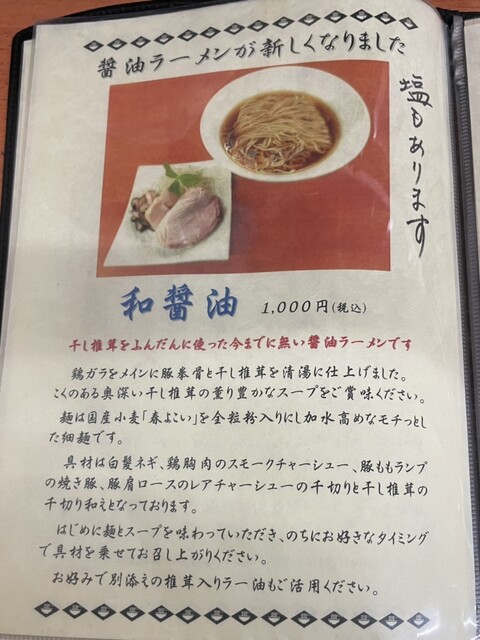 醤油ラーメンが新しくなりました
塩もあります
和醤油 1,000円(税込)
干し椎茸をふんだんに使った今までに無い醤油ラーメンです
鶏ガラをメインに豚拳骨と干し椎茸を清湯に仕上げました。
こくのある奥深い干し椎茸の薫り豊かなスープをご賞味ください。
麺は国産小麦「春よこい」を全粒粉入りにし加水高めなモチっと
した細麺です。
具材は白髪ネギ、鶏胸肉のスモークチャーシュー、豚ももランプ
の焼き豚、豚肩ロースのレアチャーシューの千切りと干し椎茸の
千切り和えとなっております。
はじめに麺とスープを味わっていただき、のちにお好きなタイミング
で具材を乗せてお召し上がりください。
お好みで別添えの椎茸入りラー油もご活用ください。